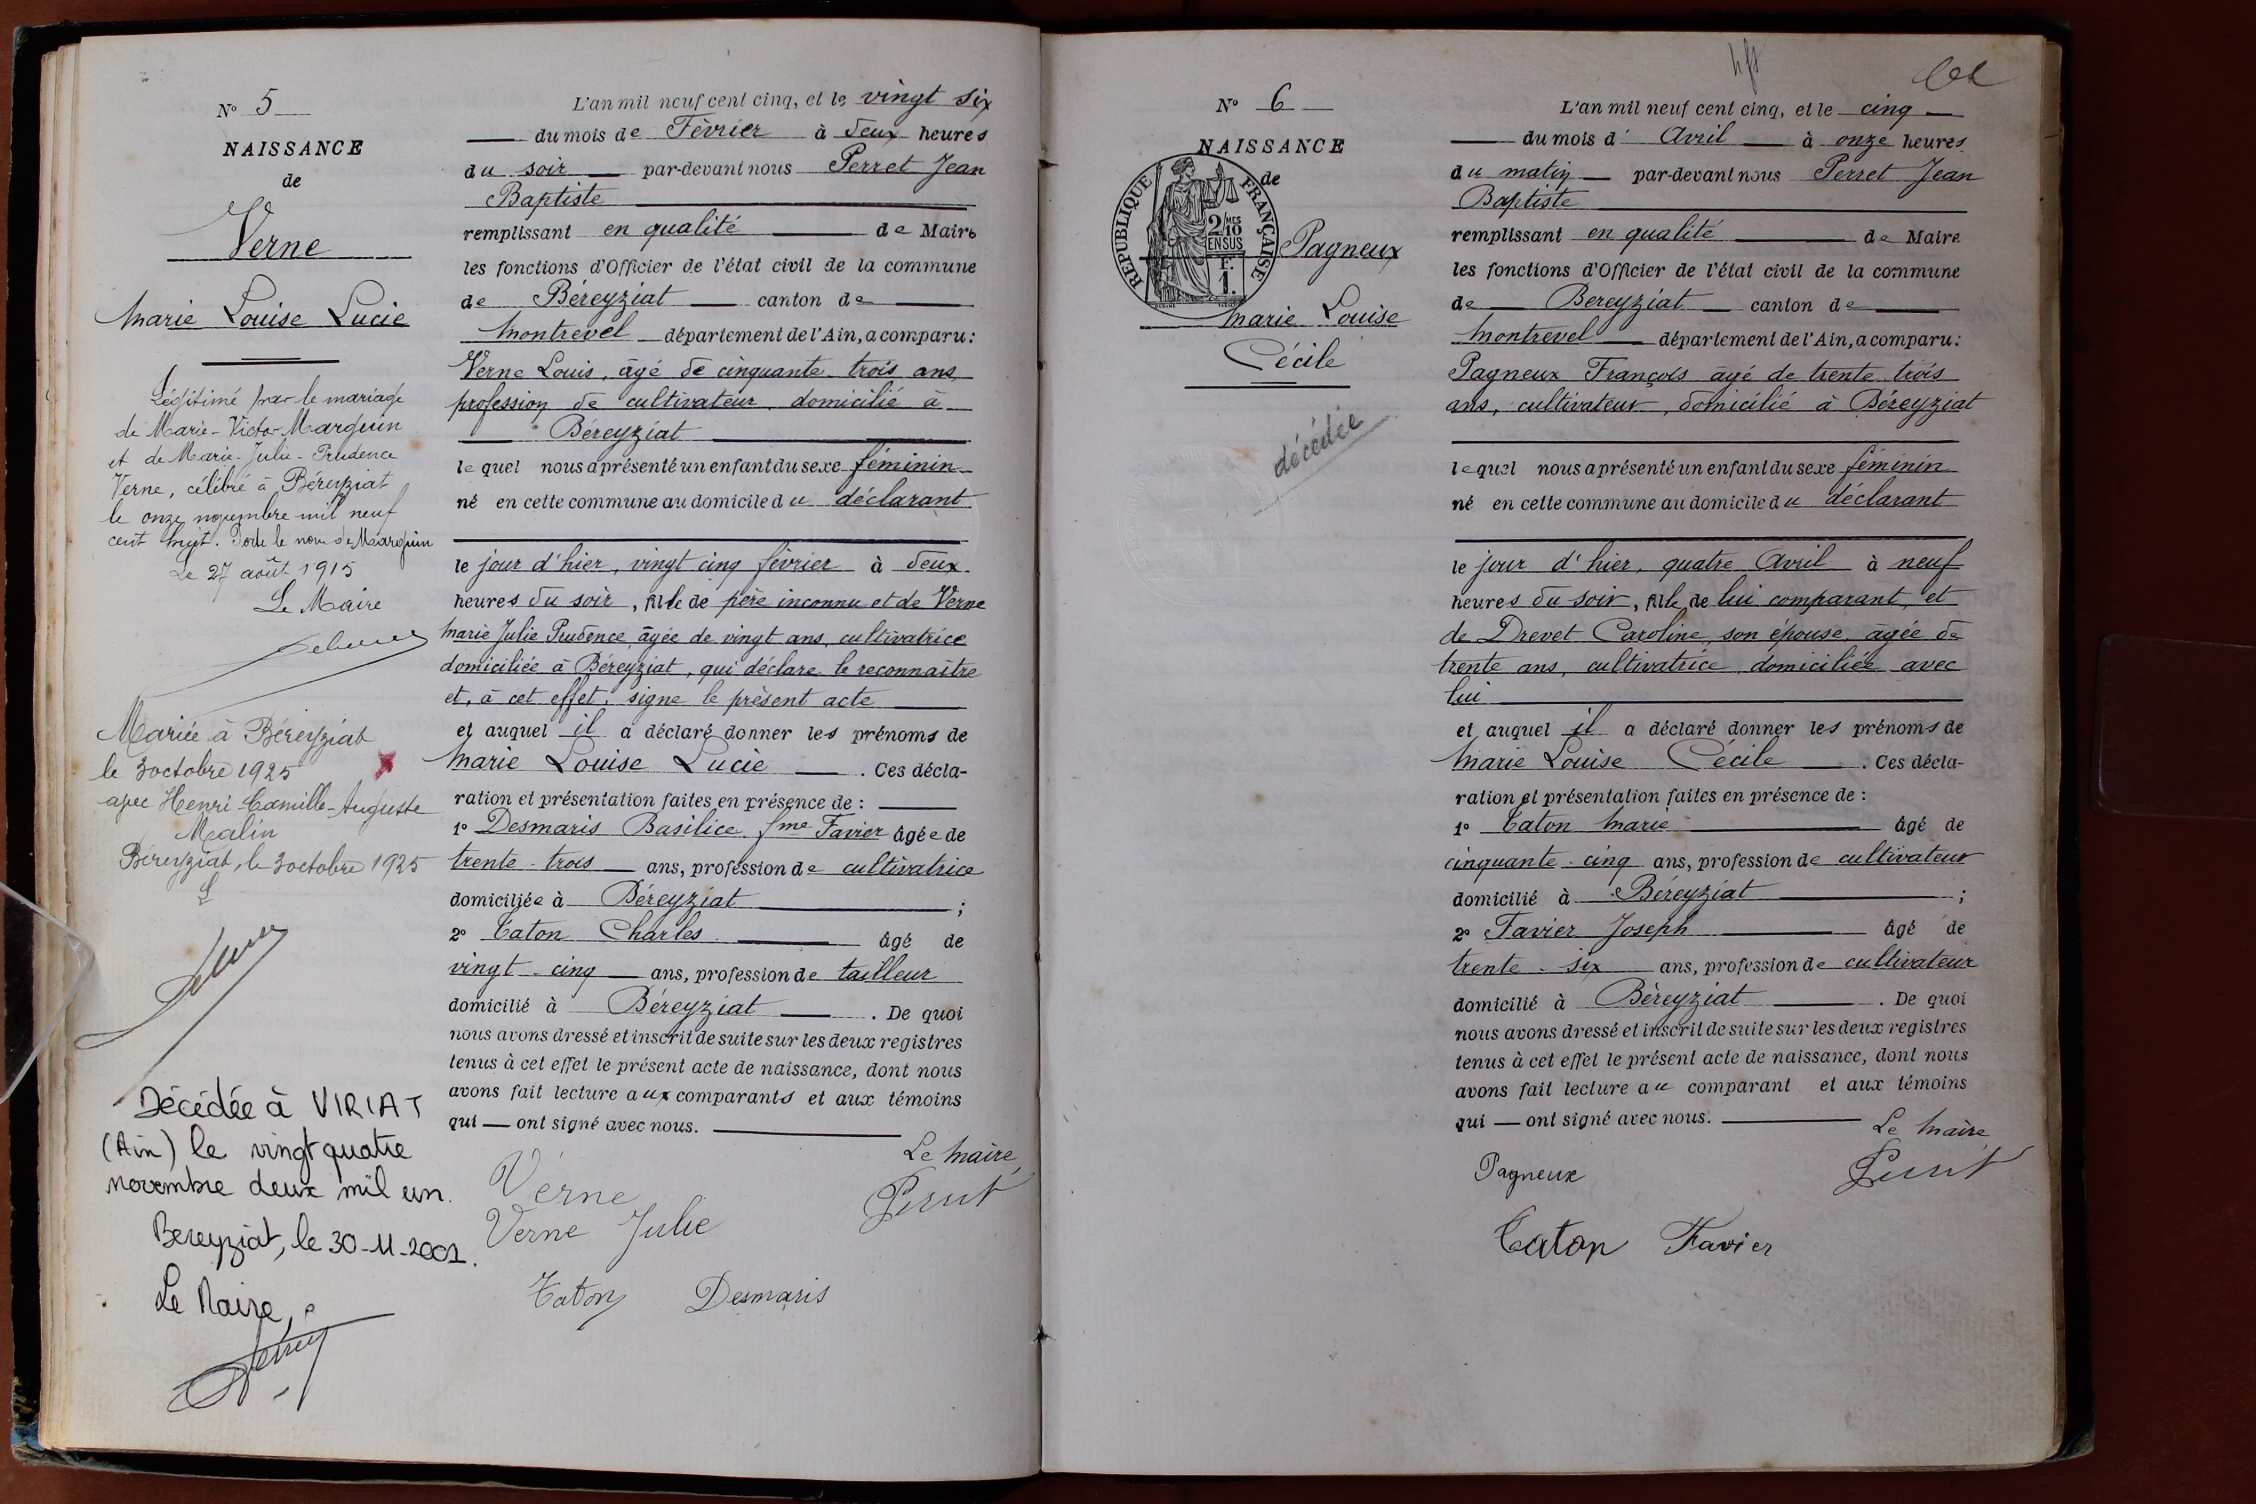 N° 5
NAISSANCE
de
Verne
Marie Louise Lucie
Légitimé par le mariage
de Marie-Victor Marguin
et de Marie-Julie-Prudence
Verne, célébré à Béreyziat
le onze novembre mil neuf
cent huit. Porte le nom de Marguin
Le 27 août 1915
Le Maire
Mariée à Béreyziat
le 3 octobre 1925
avec Henri-Camille-Auguste
Malin
Béreyziat, le 3 octobre 1925
Décédée à VIRIAT
(Ain) le vingt quatre
novembre deux mil un.
Bereyziat, le 30-11-2001.
Le Maire,
L'an mil neuf cent cinq, et le vingt six
du mois de Février à deux heures
du soir par-devant nous Perret Jean
Baptiste
remplissant en qualité de Maire
les fonctions d'Officier de l'état civil de la commune
de Béreyziat canton de
Montrevel département de l'Ain, a comparu:
Verne Louis, âgé de cinquante trois ans
profession de cultivateur domicilié à
Béreyziat
lequel nous a présenté un enfant du sexe féminin
né en cette commune au domicile du déclarant
le jour d'hier, vingt cinq février à deux
heures du soir, fille de père inconnu et de Verne
Marie Julie Prudence âgée de vingt ans, cultivatrice
domiciliée à Béreyziat, qui déclare le reconnaître
et, à cet effet, signe le présent acte
et auquel il a déclaré donner les prénoms de
Marie Louise Lucie. Ces décla-
ration et présentation faites en présence de :
1° Desmaris Basilice fme Favier âgée de
trente-trois ans, profession de cultivatrice
domiciliée à Béreyziat ;
2° Caton Charles âgé de
vingt-cinq ans, profession de tailleur
domicilié à Béreyziat. De quoi
nous avons dressé et inscrit de suite sur les deux registres
tenus à cet effet le présent acte de naissance, dont nous
avons fait lecture aux comparants et aux témoins
qui — ont signé avec nous.
Le Maire,
Verne
Perret
Verne Julie
Caton Desmaris
N° 6
NAISSANCE
de
REPUBLIQUE FRANÇAISE
2/10 MES
EN SUS
F.
1.
Pagneux
Marie Louise
Cécile
décédée
L'an mil neuf cent cinq, et le cinq
du mois d' Avril à onze heures
du matin par-devant nous Perret Jean
Baptiste
remplissant en qualité de Maire
les fonctions d'Officier de l'état civil de la commune
de Bereyziat canton de
Montrevel département de l'Ain, a comparu:
Pagneux François âgé de trente trois
ans, cultivateur, domicilié à Béreyziat
lequel nous a présenté un enfant du sexe féminin
né en cette commune au domicile du déclarant
le jour d'hier, quatre Avril à neuf
heures du soir, fille de lui comparant, et
de Drevet Caroline, son épouse, âgée de
trente ans, cultivatrice domiciliée avec
lui
et auquel il a déclaré donner les prénoms de
Marie Louise Cécile. Ces décla-
ration et présentation faites en présence de :
1° Caton Marie âgé de
cinquante-cinq ans, profession de cultivateur
domicilié à Béreyziat ;
2° Favier Joseph âgé de
trente-six ans, profession de cultivateur
domicilié à Béreyziat. De quoi
nous avons dressé et inscrit de suite sur les deux registres
tenus à cet effet le présent acte de naissance, dont nous
avons fait lecture au comparant et aux témoins
qui — ont signé avec nous.
Le Maire
Pagneux Perret
Caton Favier